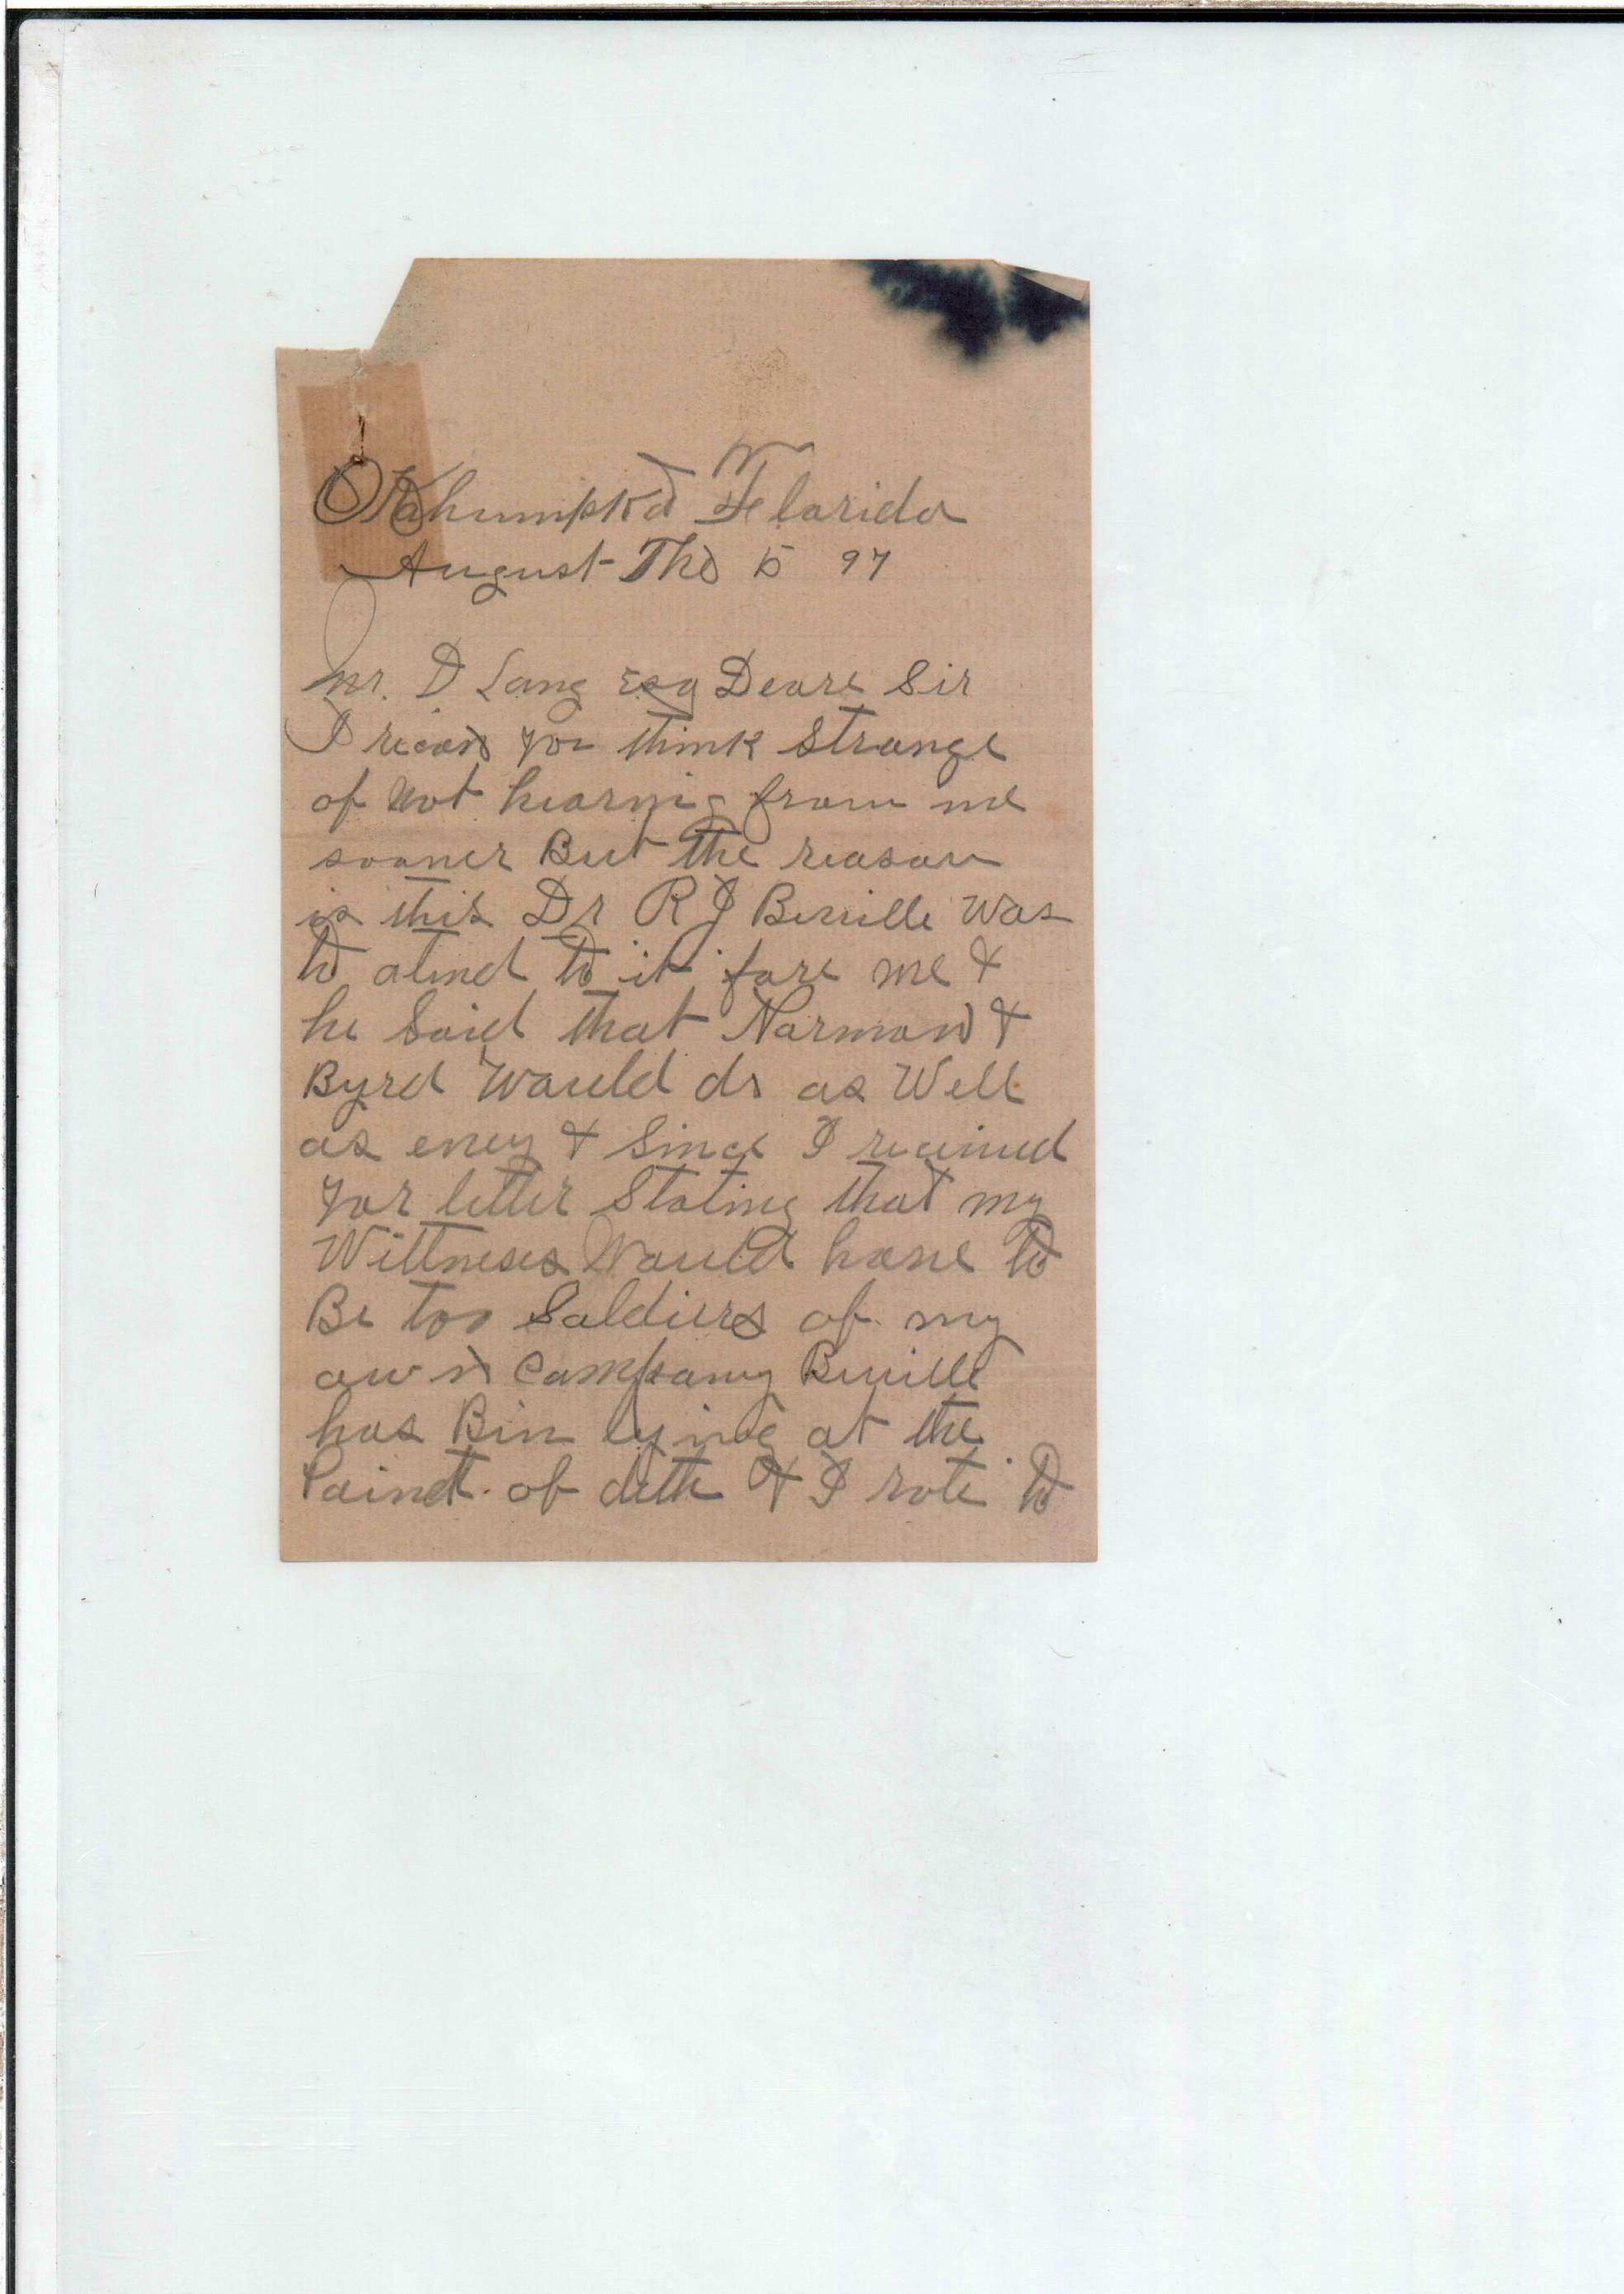 Okahumpka Florida
August The 5 97
Mr. D Lang Esq Deare Sir
I recon you think Strange
of not hearing from me
sooner But the reason
is this Dr R J Was
to atend to it fore me &
he Said that Norman &
Byrd Would do as Well
as eney & Since I recived
yor letter Stating that my
Wittneses Would have to
Be too Soldiers of my
own Company
has Bin lying at the
Poindt of deth & I rote to